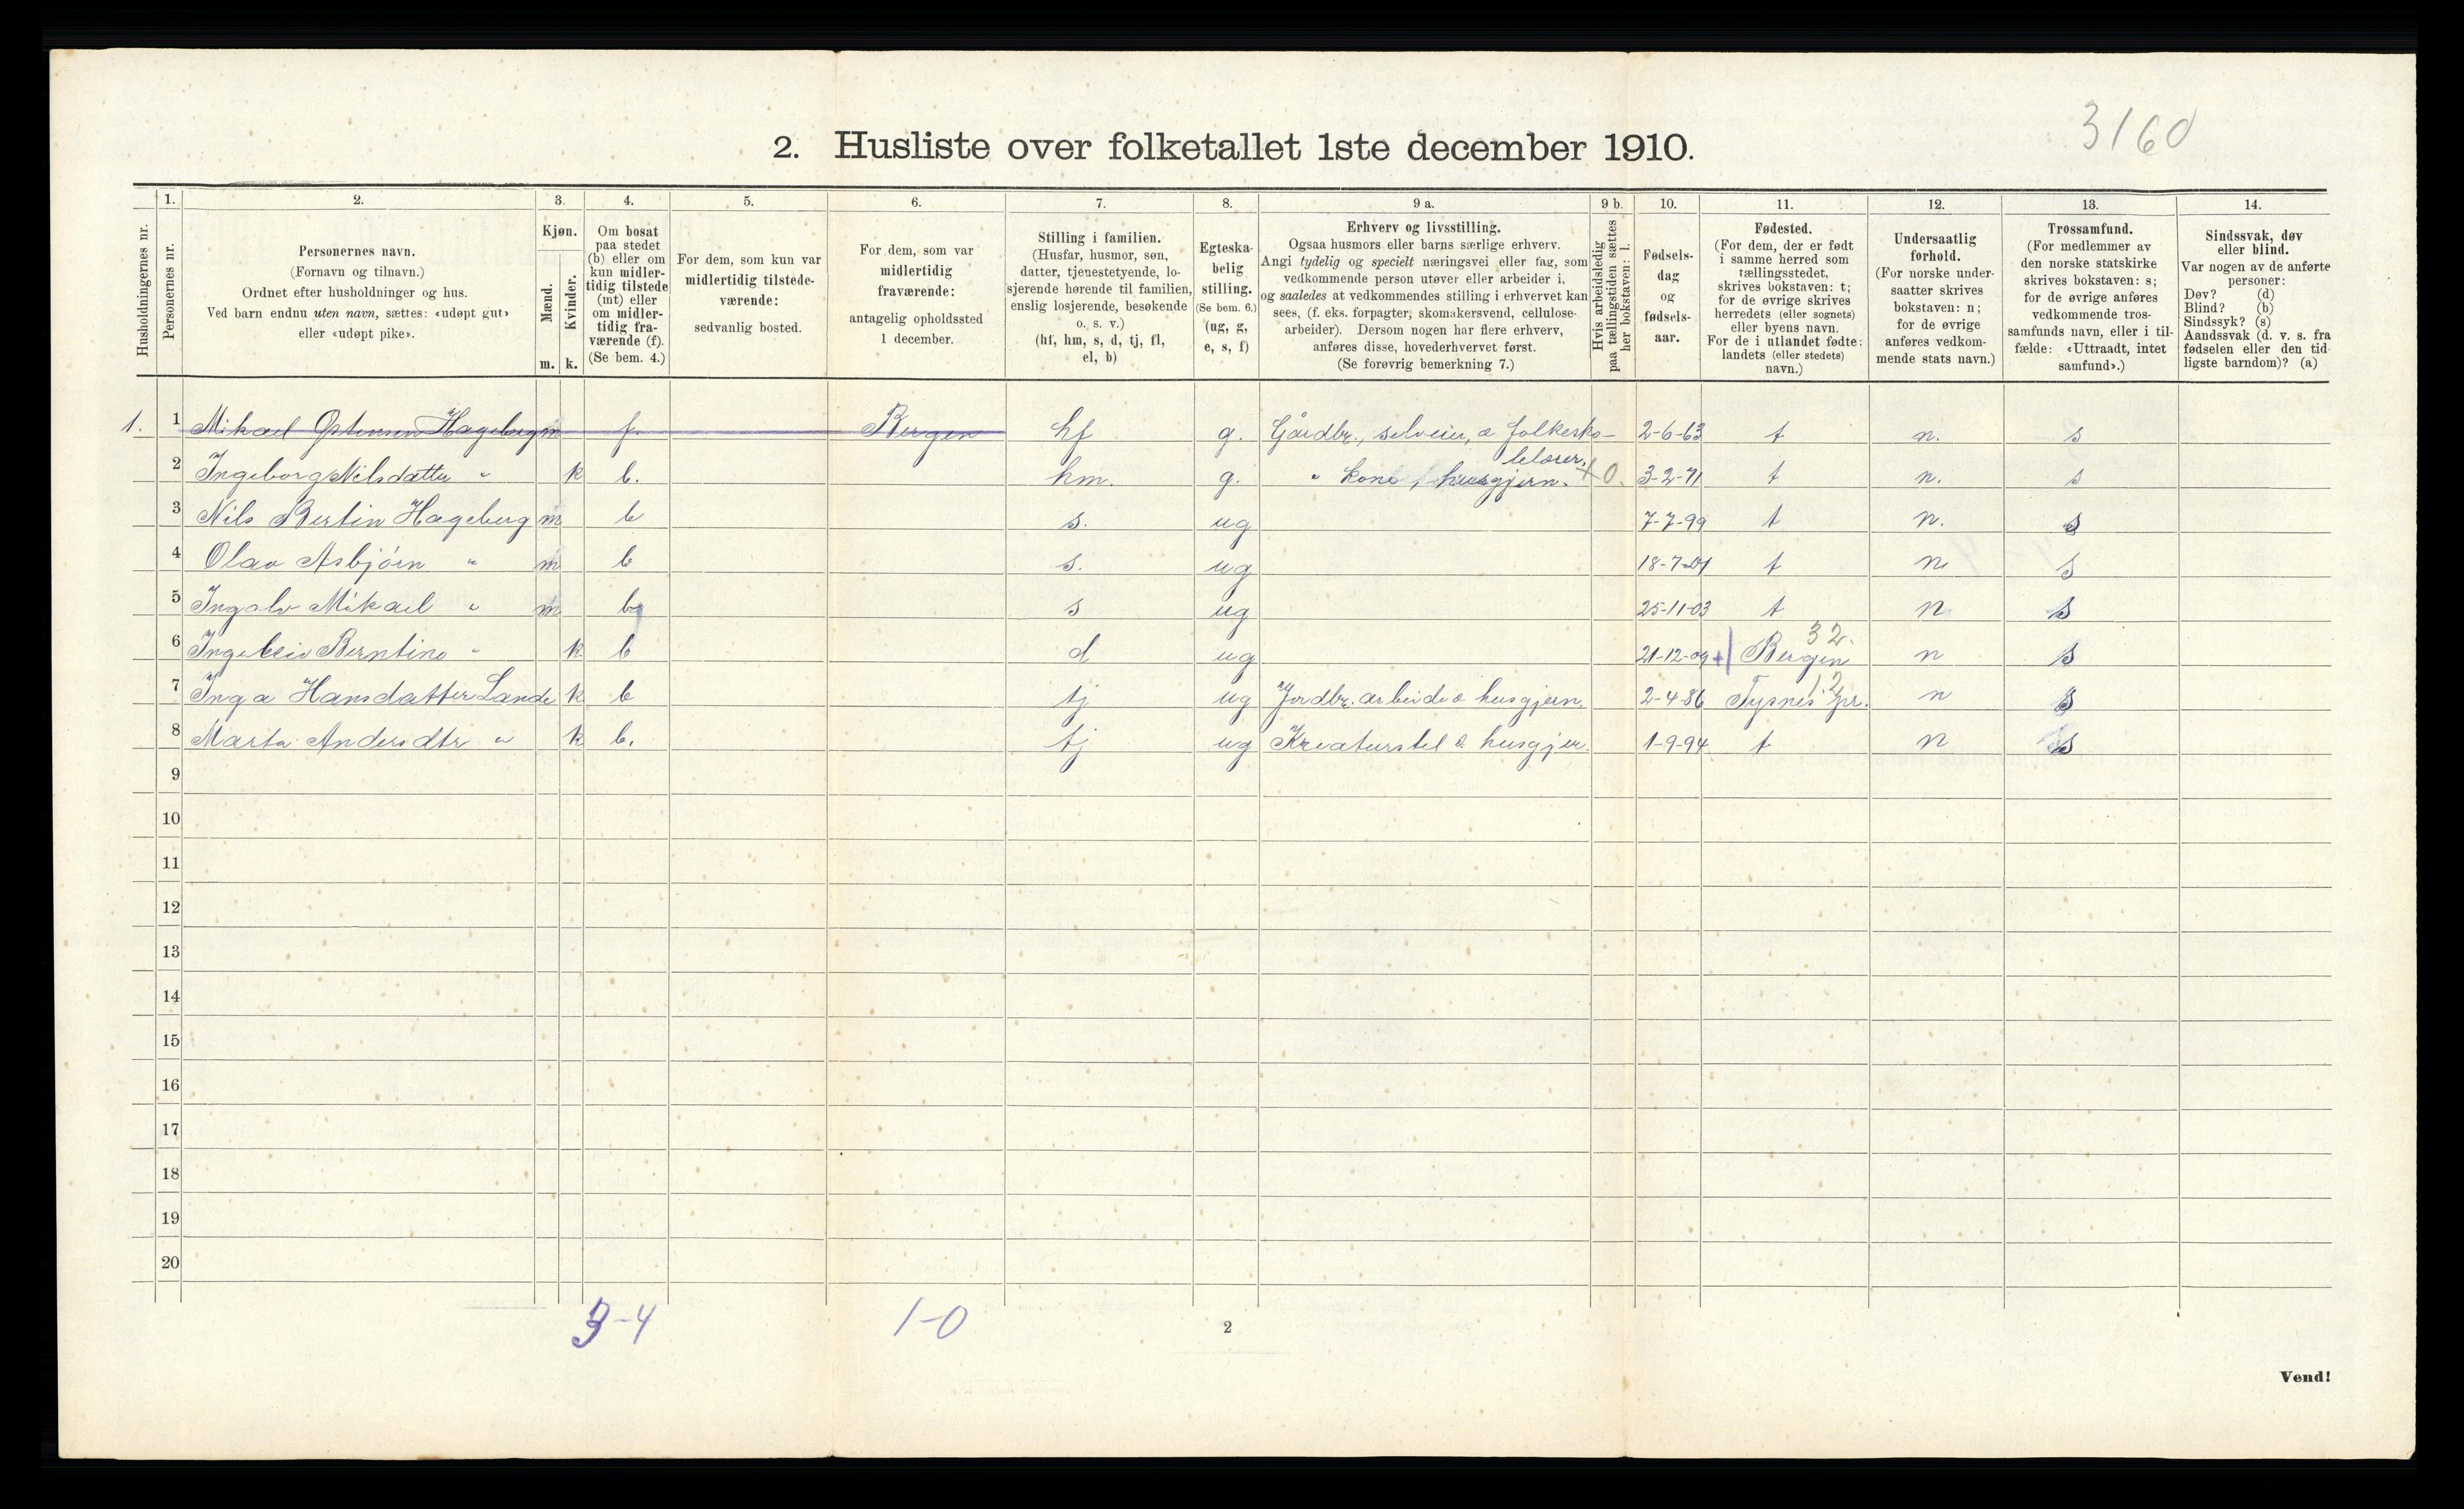 3160
2. Husliste over folketallet 1ste december 1910.
Husholdningernes nr.
1.
Personernes nr.
2.
Personernes navn.
(Fornavn og tilnavn.)
Ordnet efter husholdninger og hus.
Ved barn endnu uten navn, sættes: «udøpt gut»
eller «udøpt pike».
3.
Kjøn.
Mænd.
Kvinder.
m. k.
4.
Om bosat
paa stedet
(b) eller om
kun midler-
tidig tilstede
(mt) eller
om midler-
tidig fra-
værende (f).
(Se bem. 4.)
5.
For dem, som kun var
midlertidig tilstede-
værende:
sedvanlig bosted.
6.
For dem, som var
midlertidig
fraværende:
antagelig opholdssted
1 december.
7.
Stilling i familien.
(Husfar, husmor, søn,
datter, tjenestetyende, lo-
sjerende hørende til familien,
enslig losjerende, besøkende
o. s. v.)
(hf, hm, s, d, tj, fl,
el, b)
8.
Egteska-
belig
stilling.
(Se bem. 6.)
(ug, g,
e, s, f)
9 a.
Erhverv og livsstilling.
Ogsaa husmors eller barns særlige erhverv.
Angi tydelig og specielt næringsvei eller fag, som
vedkommende person utøver eller arbeider i,
og saaledes at vedkommendes stilling i erhvervet kan
sees, (f. eks. forpagter, skomakersvend, cellulose-
arbeider). Dersom nogen har flere erhverv,
anføres disse, hovederhvervet først.
(Se forøvrig bemerkning 7.)
9 b.
Hvis arbeidsledig
paa tællingstiden sættes
her bokstaven: l.
10.
Fødsels-
dag
og
fødsels-
aar.
11.
Fødested.
(For dem, der er født
i samme herred som
tællingsstedet,
skrives bokstaven: t;
for de øvrige skrives
herredets (eller sognets)
eller byens navn.
For de i utlandet fødte:
landets (eller stedets)
navn.)
12.
Undersaatlig
forhold.
(For norske under-
saatter skrives
bokstaven: n;
for de øvrige
anføres vedkom-
mende stats navn.)
13.
Trossamfund.
(For medlemmer av
den norske statskirke
skrives bokstaven: s;
for de øvrige anføres
vedkommende tros-
samfunds navn, eller i til-
fælde: «Uttraadt, intet
samfund».)
14.
Sindssvak, døv
eller blind.
Var nogen av de anførte
personer:
Døv? (d)
Blind? (b)
Sindssyk? (s)
Aandssvak (d. v. s. fra
fødselen eller den tid-
ligste barndom)? (a)
1. 1 Mikael Hageberg m f. Bergen hf g. Gårdbr., selveier, o folkesko- 2-6-63 t n. s
lelærer.
2 Ingeborg Nilsdatter " k b. hm. g. " kone, husgjern. +0. 3-2-71 t n. s
3 Nils Bertin Hageberg m b s. ug 7-7-99 t n. s
4 Olav Asbjörn " m b s. ug 18-7-01 t n s
5 Ingolv Mikael " m b s ug 25-11-03 t n s
32.
6 Berntine " k b d ug 21-12-09 + Bergen n s
12
7 Inga Hansdatter Lande k b tj ug Jordbr. arbeide o husgjern. 2-4-86 Tysnes pr. n s
8 Marta Andersdtr " k b. tj ug Kreaturstel o husgjer. 1-9-94 t n s
9
10
11
12
13
14
15
16
17
18
19
20
3-4 1-0
2
Vend!